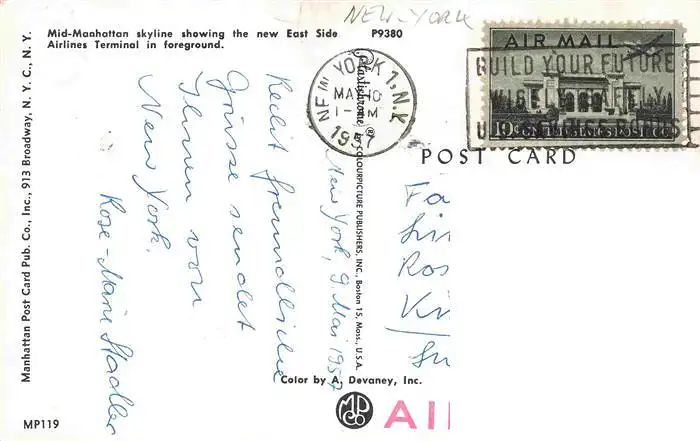 NEW-YORK
Mid-Manhattan skyline showing the new East Side
Airlines Terminal in foreground.
P9380
Manhattan Post Card Pub. Co., Inc., 913 Broadway, N. Y. C., N. Y.
New York, 9. Mai 1957
Recht freundliche
Grüsse sendet
Ihnen von
New York.
Rose-Marie Stadler
Plastichrome ® by COLOURPICTURE PUBLISHERS, INC., Boston 15, Mass., U.S.A.
NEW YORK 1, N.Y.
MAY 10
1957
AIR MAIL
BUILD YOUR FUTURE
10¢ UNITED STATES POSTAGE
POST CARD
Color by A. Devaney, Inc.
MPCo
AI
MP119